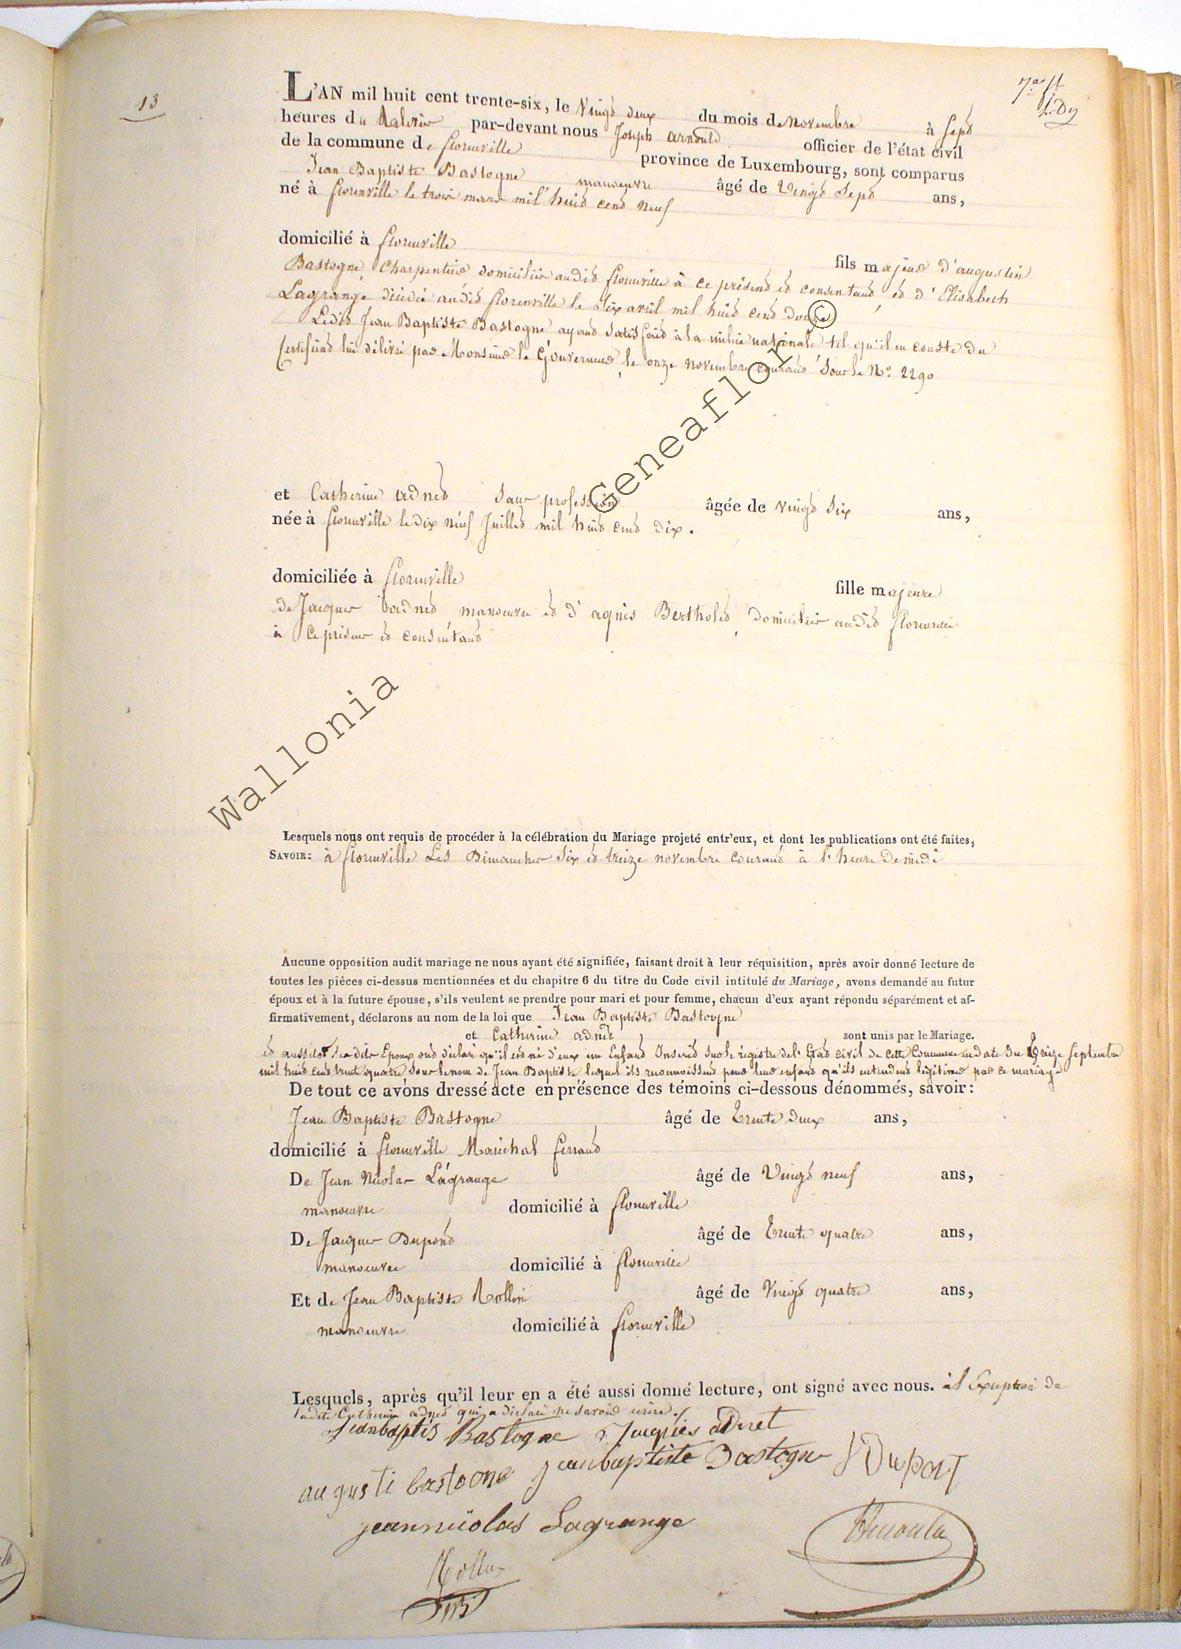 13
L'AN mil huit cent trente-six, le Vingt deux du mois de novembre à Sept
heures du Matin par-devant nous Joseph Arnould officier de l'état civil
de la commune de florenville province de Luxembourg, sont comparus
Jean Baptiste Bastogne manoeuvre âgé de Vingt Sept ans,
né à florenville le trois mars mil huit cent neuf
domicilié à florenville
fils majeur d'augustin
Bastogne, Charpentier domicilié audit florenville à ce présent et consentant, et d'Elisabeth
Lagrange décédée audit florenville le Six avril mil huit cent douze
Ledit Jean Baptiste Bastogne ayant satisfait à la milice nationale tel qu'il en conste du
Certificat lui délivré par Monsieur le Gouverneur le onze novembre courant Sous le No. 2290
et Catherine adnet sans profession âgée de vingt six ans,
née à florenville le dix neuf Juillet mil huit cent dix.
domiciliée à florenville
fille majeure
de Jacques adnet manoeuvre et d'agnès Bertholet, domiciliés audit florenville
à ce présens et consentans
Lesquels nous ont requis de procéder à la célébration du Mariage projeté entr'eux, et dont les publications ont été faites,
SAVOIR: à florenville Les Dimanches Six et treize novembre courant à l'heure de midi
Aucune opposition audit mariage ne nous ayant été signifiée, faisant droit à leur réquisition, après avoir donné lecture de
toutes les pièces ci-dessus mentionnées et du chapitre 6 du titre du Code civil intitulé du Mariage, avons demandé au futur
époux et à la future épouse, s'ils veulent se prendre pour mari et pour femme, chacun d'eux ayant répondu séparément et af-
firmativement, déclarons au nom de la loi que Jean Baptiste Bastogne
et Catherine adnet sont unis par le Mariage.
et aussitôt lesdits Epoux ont déclaré qu'il est né d'eux un Enfant Inscrit sur le régistre de l'Etat Civil de cette Commune en date du treize Septembre
mil huit cent trente quatre sous le nom de Jean Baptiste lequel ils reconnoissent pour leur enfant qu'ils entendent légitimer par ce mariage
De tout ce avons dressé acte en présence des témoins ci-dessous dénommés, savoir:
Jean Baptiste Bastogne âgé de trente deux ans,
domicilié à florenville Maréchal ferrant
De Jean Nicolas Lagrange âgé de Vingt neuf ans,
manoeuvre domicilié à florenville
De Jacques Dupont âgé de trente quatre ans,
manoeuvre domicilié à florenville
Et de Jean Baptiste Rollin âgé de Vingt quatre ans,
manoeuvre domicilié à florenville
Lesquels, après qu'il leur en a été aussi donné lecture, ont signé avec nous. à l'Exception de
ladite Catherine adnet qui a déclaré ne savoir écrire.
Jeanbaptis Bastogne Jacques adnet
augusti bastogne jeanbaptiste Bastogne J Dupont
jeannicolas Lagrange
Arnould
Rollin
Wallonia Geneaflor ©